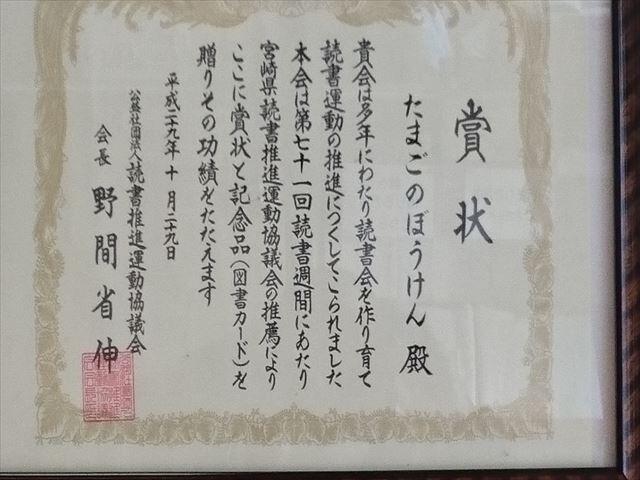 賞状
たまごのぼうけん 殿
貴会は多年にわたり読書会を作り育て
読書運動の推進につくしてこられました
本会は第七十一回読書週間にあたり
宮崎県読書推進運動協議会の推薦により
ここに賞状と記念品(図書カード)を
贈りその功績をたたえます
平成二十九年十月二十九日
公益社団法人読書推進運動協議会
会長 野間省伸